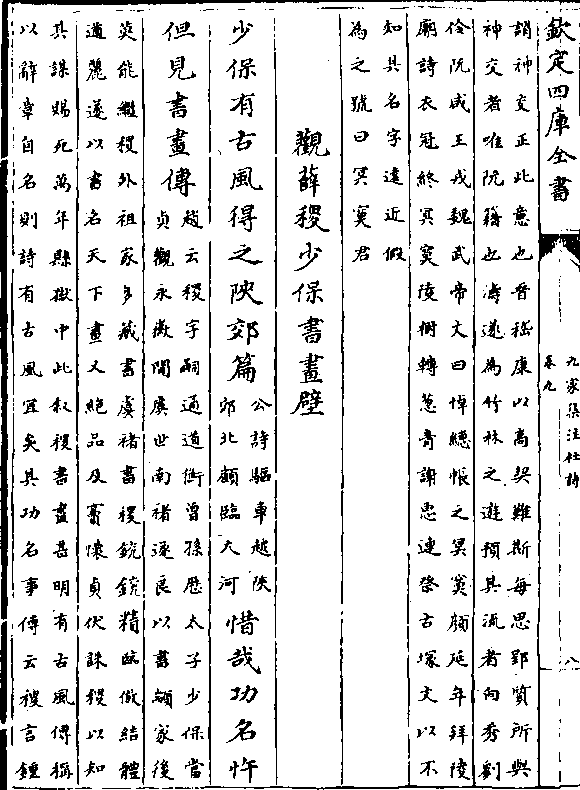 欽定四庫全書
九家集注杜詩
卷九
八
謂神交正此意也晉嵇康以高契難斯每思郢質所與
神交者唯阮籍也濤遂為竹林之遊預其流者向秀劉
伶阮咸王戎魏武帝文曰悼繐帳之冥冥顏延年拜陵
廟詩衣冠終冥寞陵樹轉葱青謝惠連祭古塚文以不
知其名字遠近假
為之號曰冥寞君
觀薛稷少保書畫壁
少保有古風得之陜郊篇
公詩驅車越陜
郊北顧臨大河
惜哉功名忤
但見書畫傳
趙云稷字嗣通道衡曾孫歷太子少保當
貞觀永徽間虞世南褚遂良以書顓家後
莫能繼稷外祖家多藏書虞褚書稷銳銳精臨倣結體
遒麗遂以書名天下畫又絶品及竇懷貞伏誅稷以知
其謀賜死萬年縣獄中此叙稷書畫甚明有古風傳稱
以辭章自名則詩有古風宜矣其功名事傳云稷言鍾